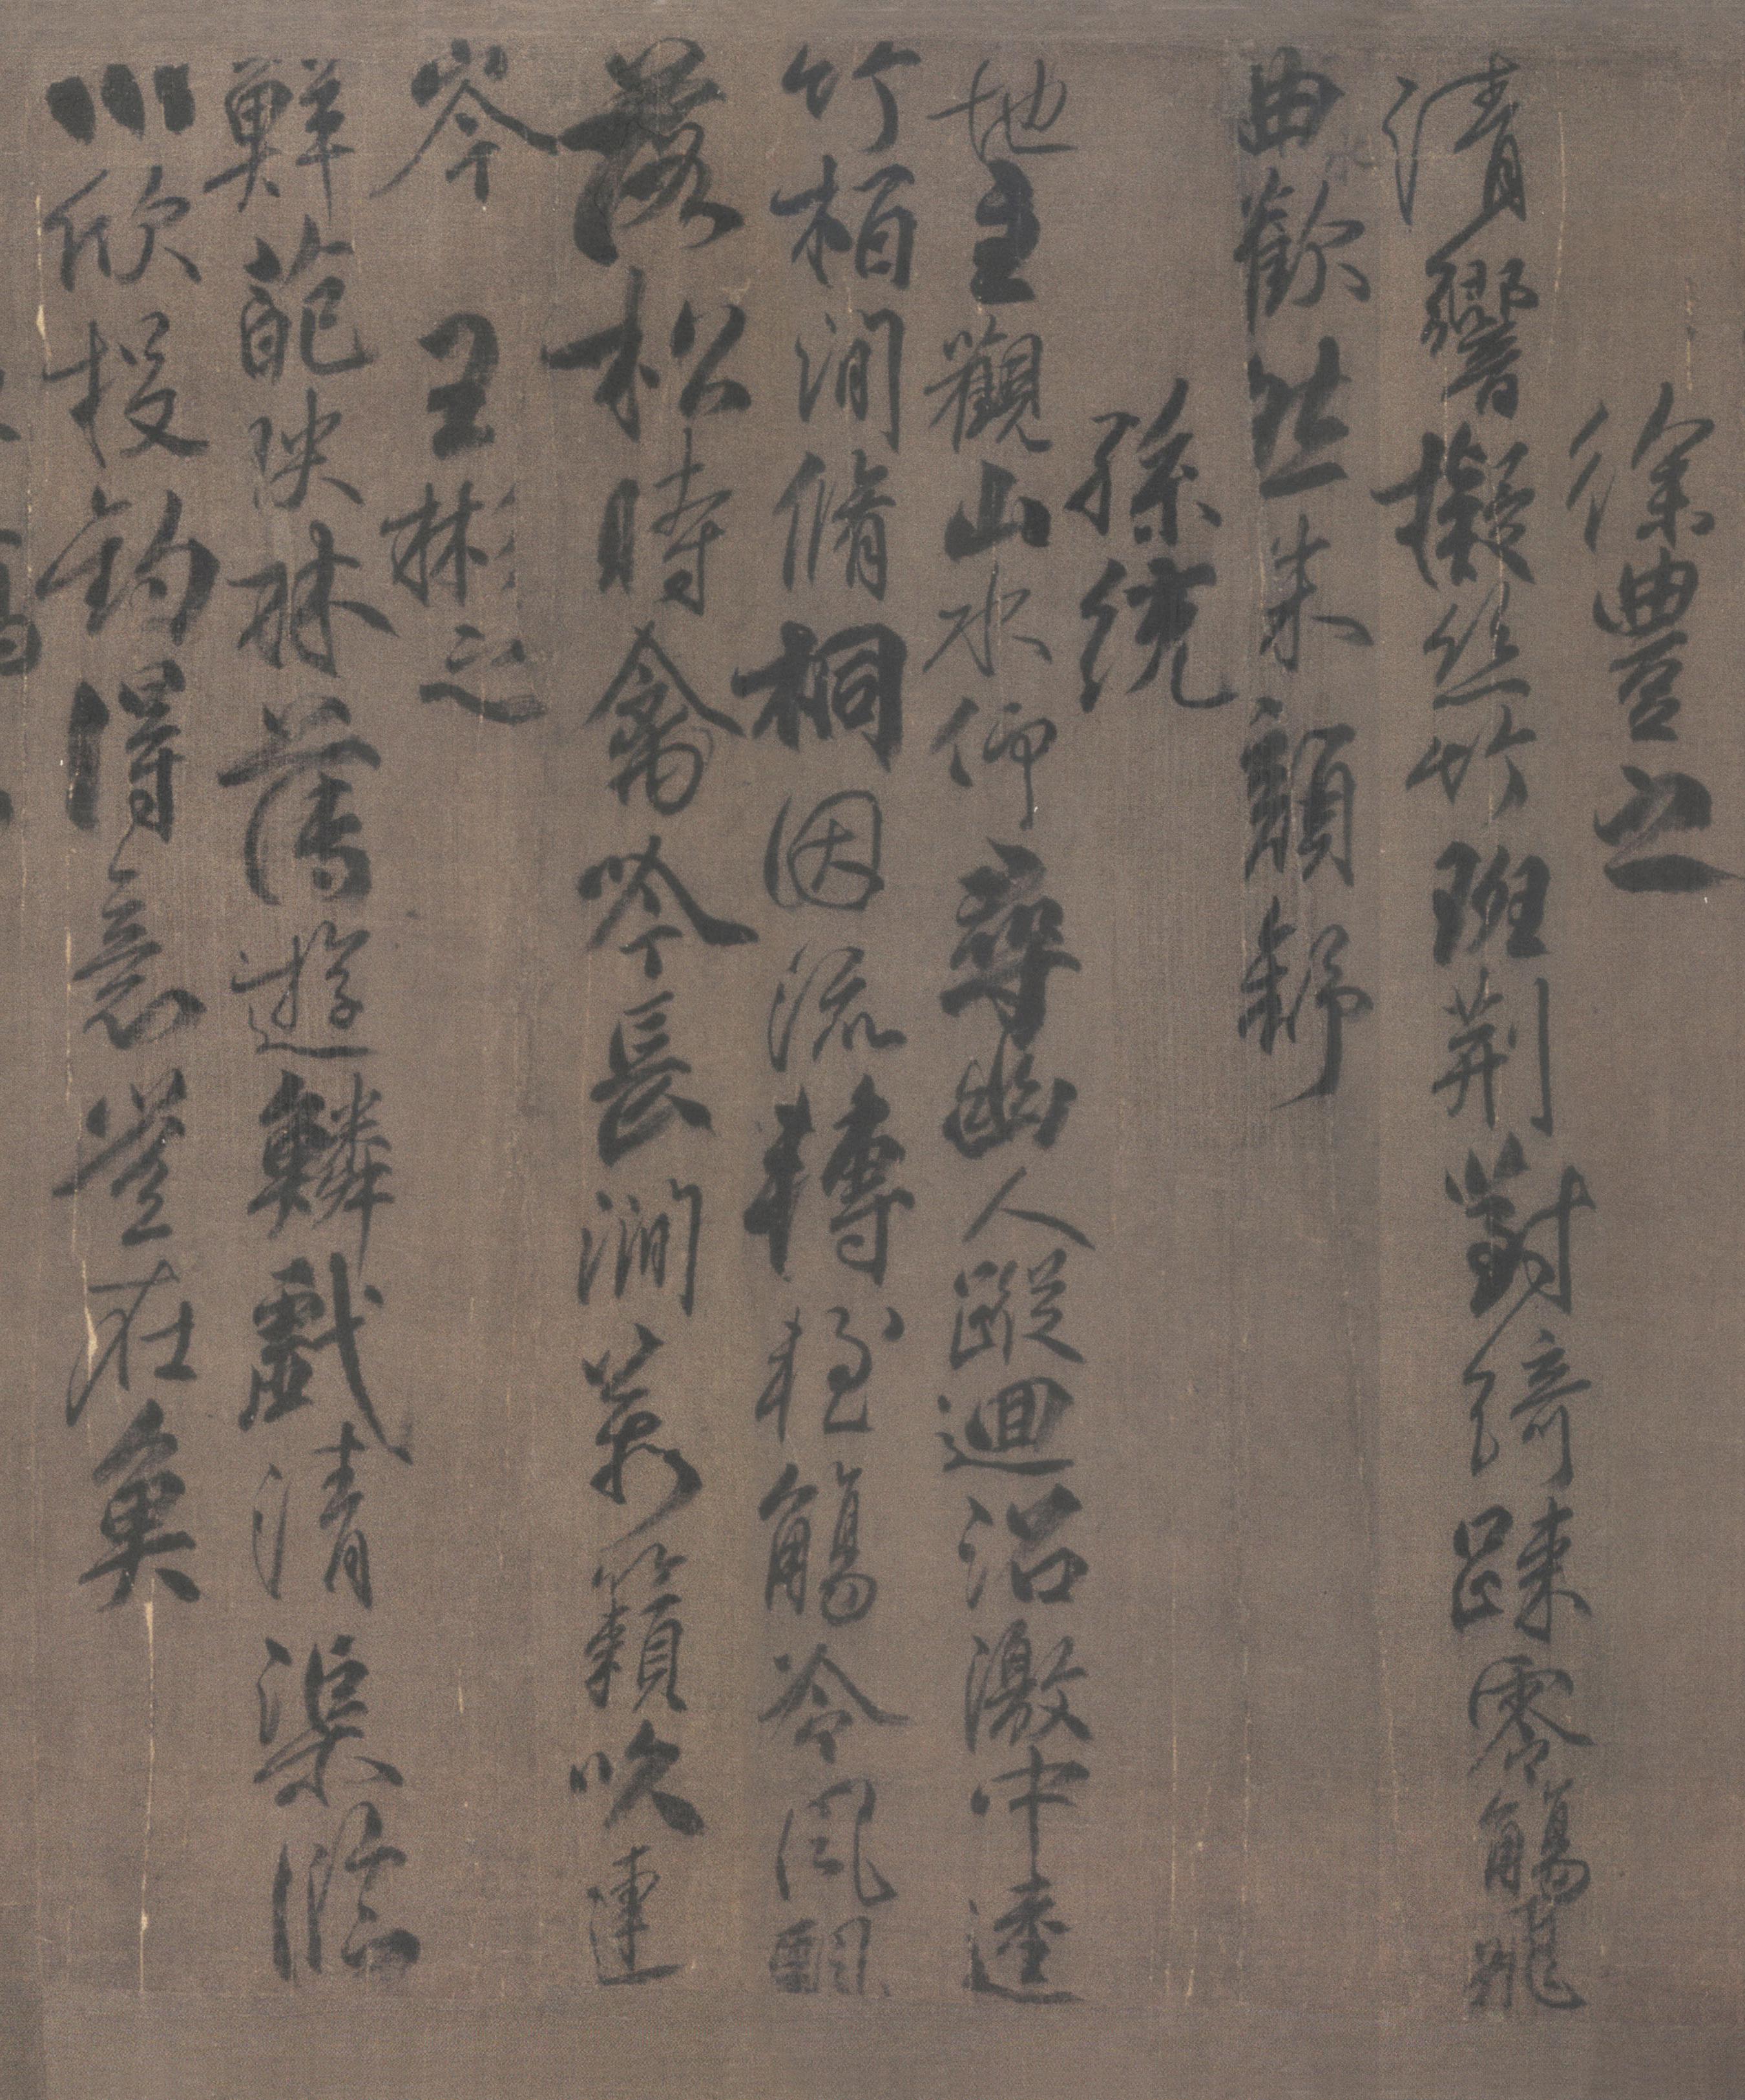 徐豐之
清響擬絲竹班荆對綺踈零觴飛
曲水歡然朱顔舒
孫統
地主觀山水仰尋幽人蹤迴沼激中逵
竹栢澗脩桐因流轉輕觴冷風飄
落松時禽吟長澗萬籟吹連
岑 王彬之
鮮葩映林薄遊鱗戲清渠臨
川欣投釣得意豈在魚